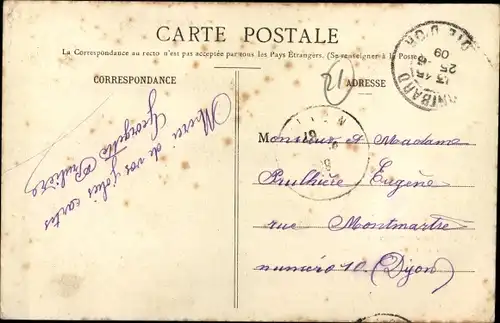 CARTE POSTALE
La Correspondance au recto n'est pas acceptée par tous les Pays Étrangers. (Se renseigner à la Poste)
CORRESPONDANCE
ADRESSE
21
CÔTE D'OR
13 45
25
09
Merci de vos jolies cartes
Georgette Prulière
Monsieur et Madame
Prulhière Eugène
rue Montmartre
numéro 10. (Dijon)